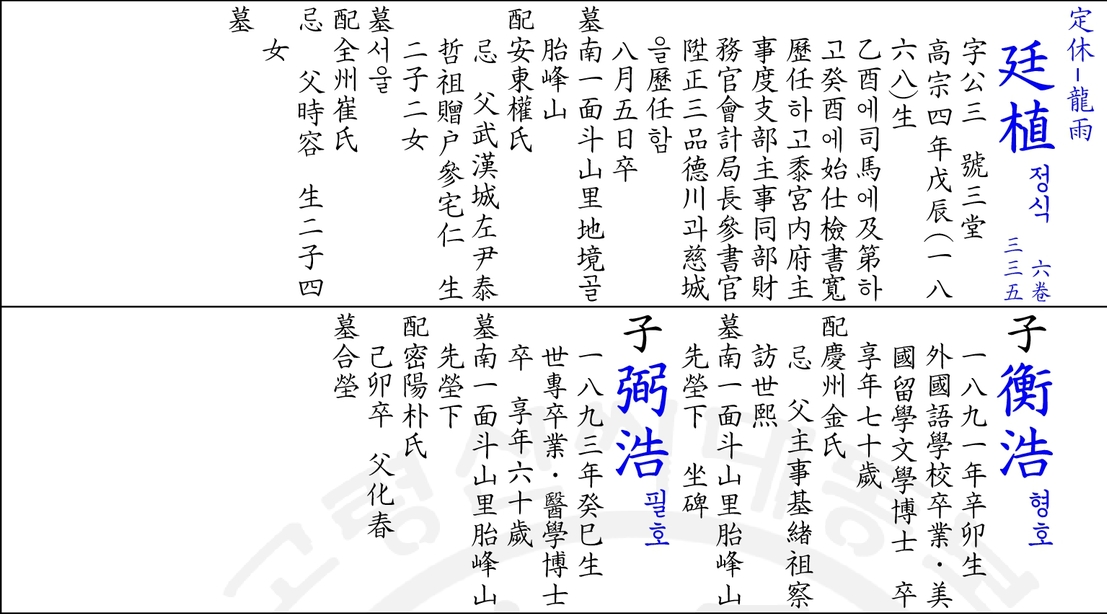 定休-龍雨
廷植 정식 六卷 三三五
字公三 號三堂
高宗四年戊辰(一八
六八)生
乙酉에司馬에及第하
고癸酉에始仕檢書寬
歷任하고黍宮内府主
事度支部主事同部財
務官會計局長參書官
陞正三品德川과慈城
을歷任함
八月五日卒
墓南一面斗山里地境골
胎峰山
配安東權氏
忌 父武漢城左尹泰
哲祖贈户參宅仁 生
二子二女
墓서울
配全州崔氏
忌 父時容 生二子四
女
墓
子衡浩 형호
一八九一年辛卯生
外國語學校卒業·美
國留學文學博士 卒
享年七十歲
配慶州金氏
忌 父主事基緒祖察
訪世熙
墓南一面斗山里胎峰山
先塋下 坐碑
子弼浩 필호
一八九三年癸巳生
世專卒業·醫學博士
卒 享年六十歲
墓南一面斗山里胎峰山
先塋下
配密陽朴氏
己卯卒 父化春
墓合塋
고령신씨대종회